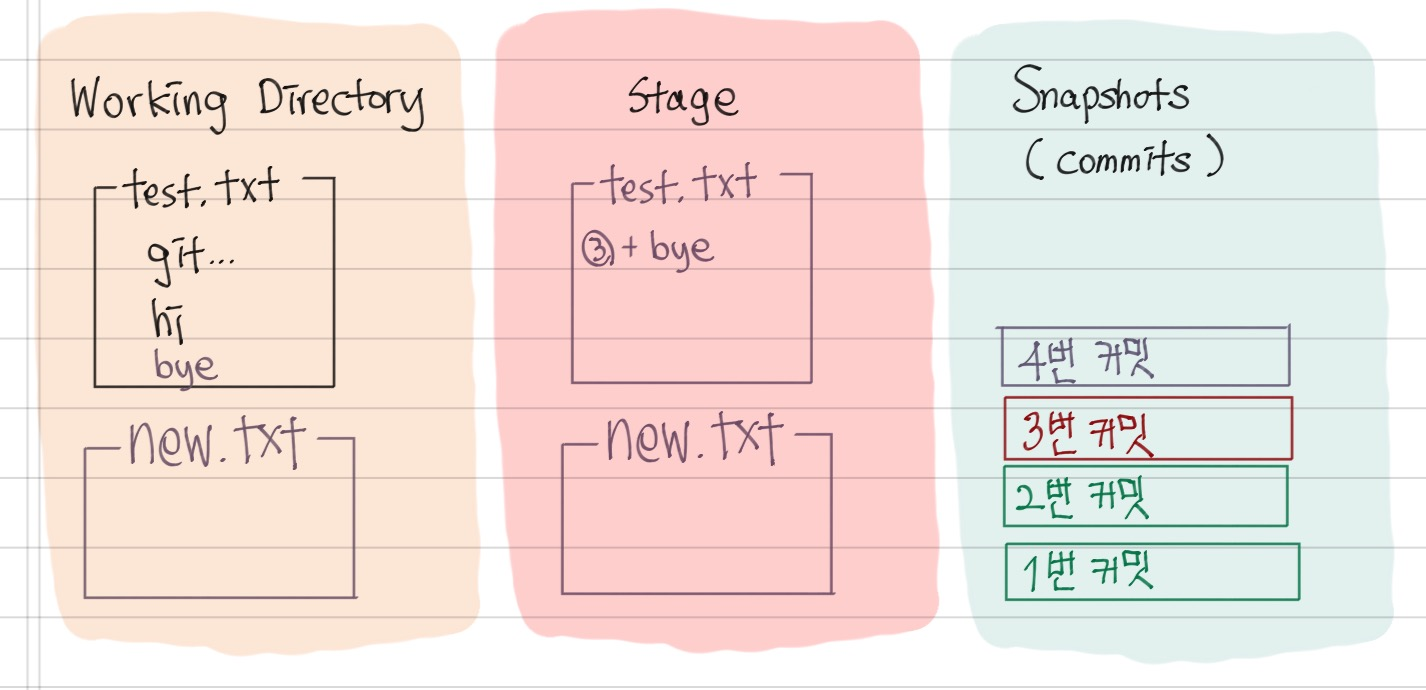 Working Directory
test.txt
git...
hi
bye
new.txt
Stage
test.txt
③ + bye
new.txt
Snapshots
(commits)
4번 커밋
3번 커밋
2번 커밋
1번 커밋